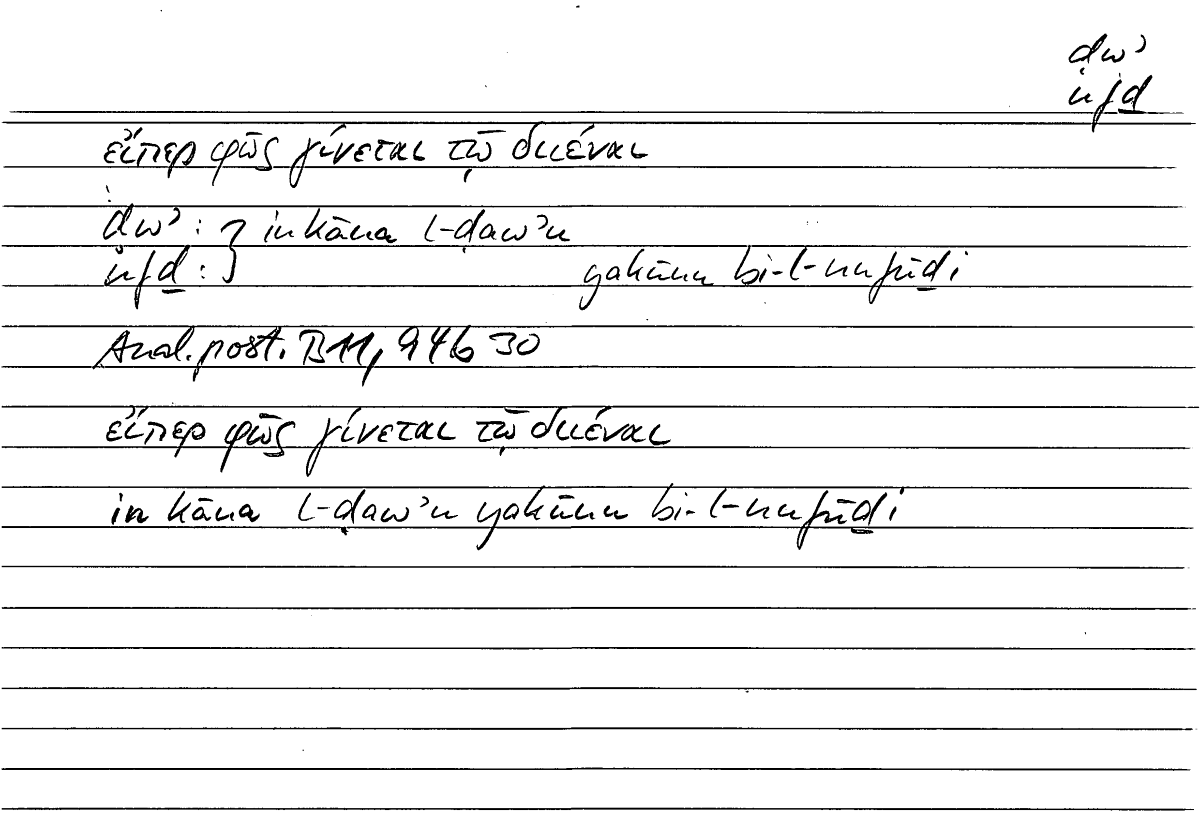 ḍwʾ
nfḏ
εἴπερ φῶς γίνεται τῷ διιέναι
ḍwʾ : } in kāna l-ḍawʾu
nfḏ : } yakūnu bi-l-nufūḏi
Anal. post. B11, 94b 30
εἴπερ φῶς γίνεται τῷ διιέναι
in kāna l-ḍawʾu yakūnu bi-l-nufūḏi